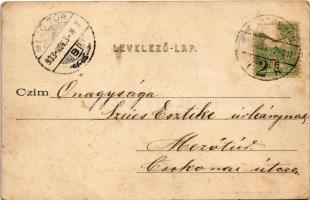 LEVELEZŐ-LAP.
Czim Önagysága
Szücs Esztike úrleánynak
Mezőtúr
Csokonai útcza